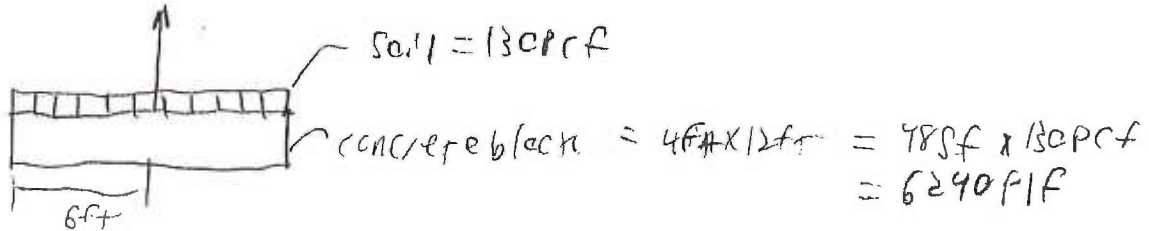 Soil = 130pcf
concrete block = 4ft x 12ft = 48sf x 130pcf
= 6240 plf
6ft